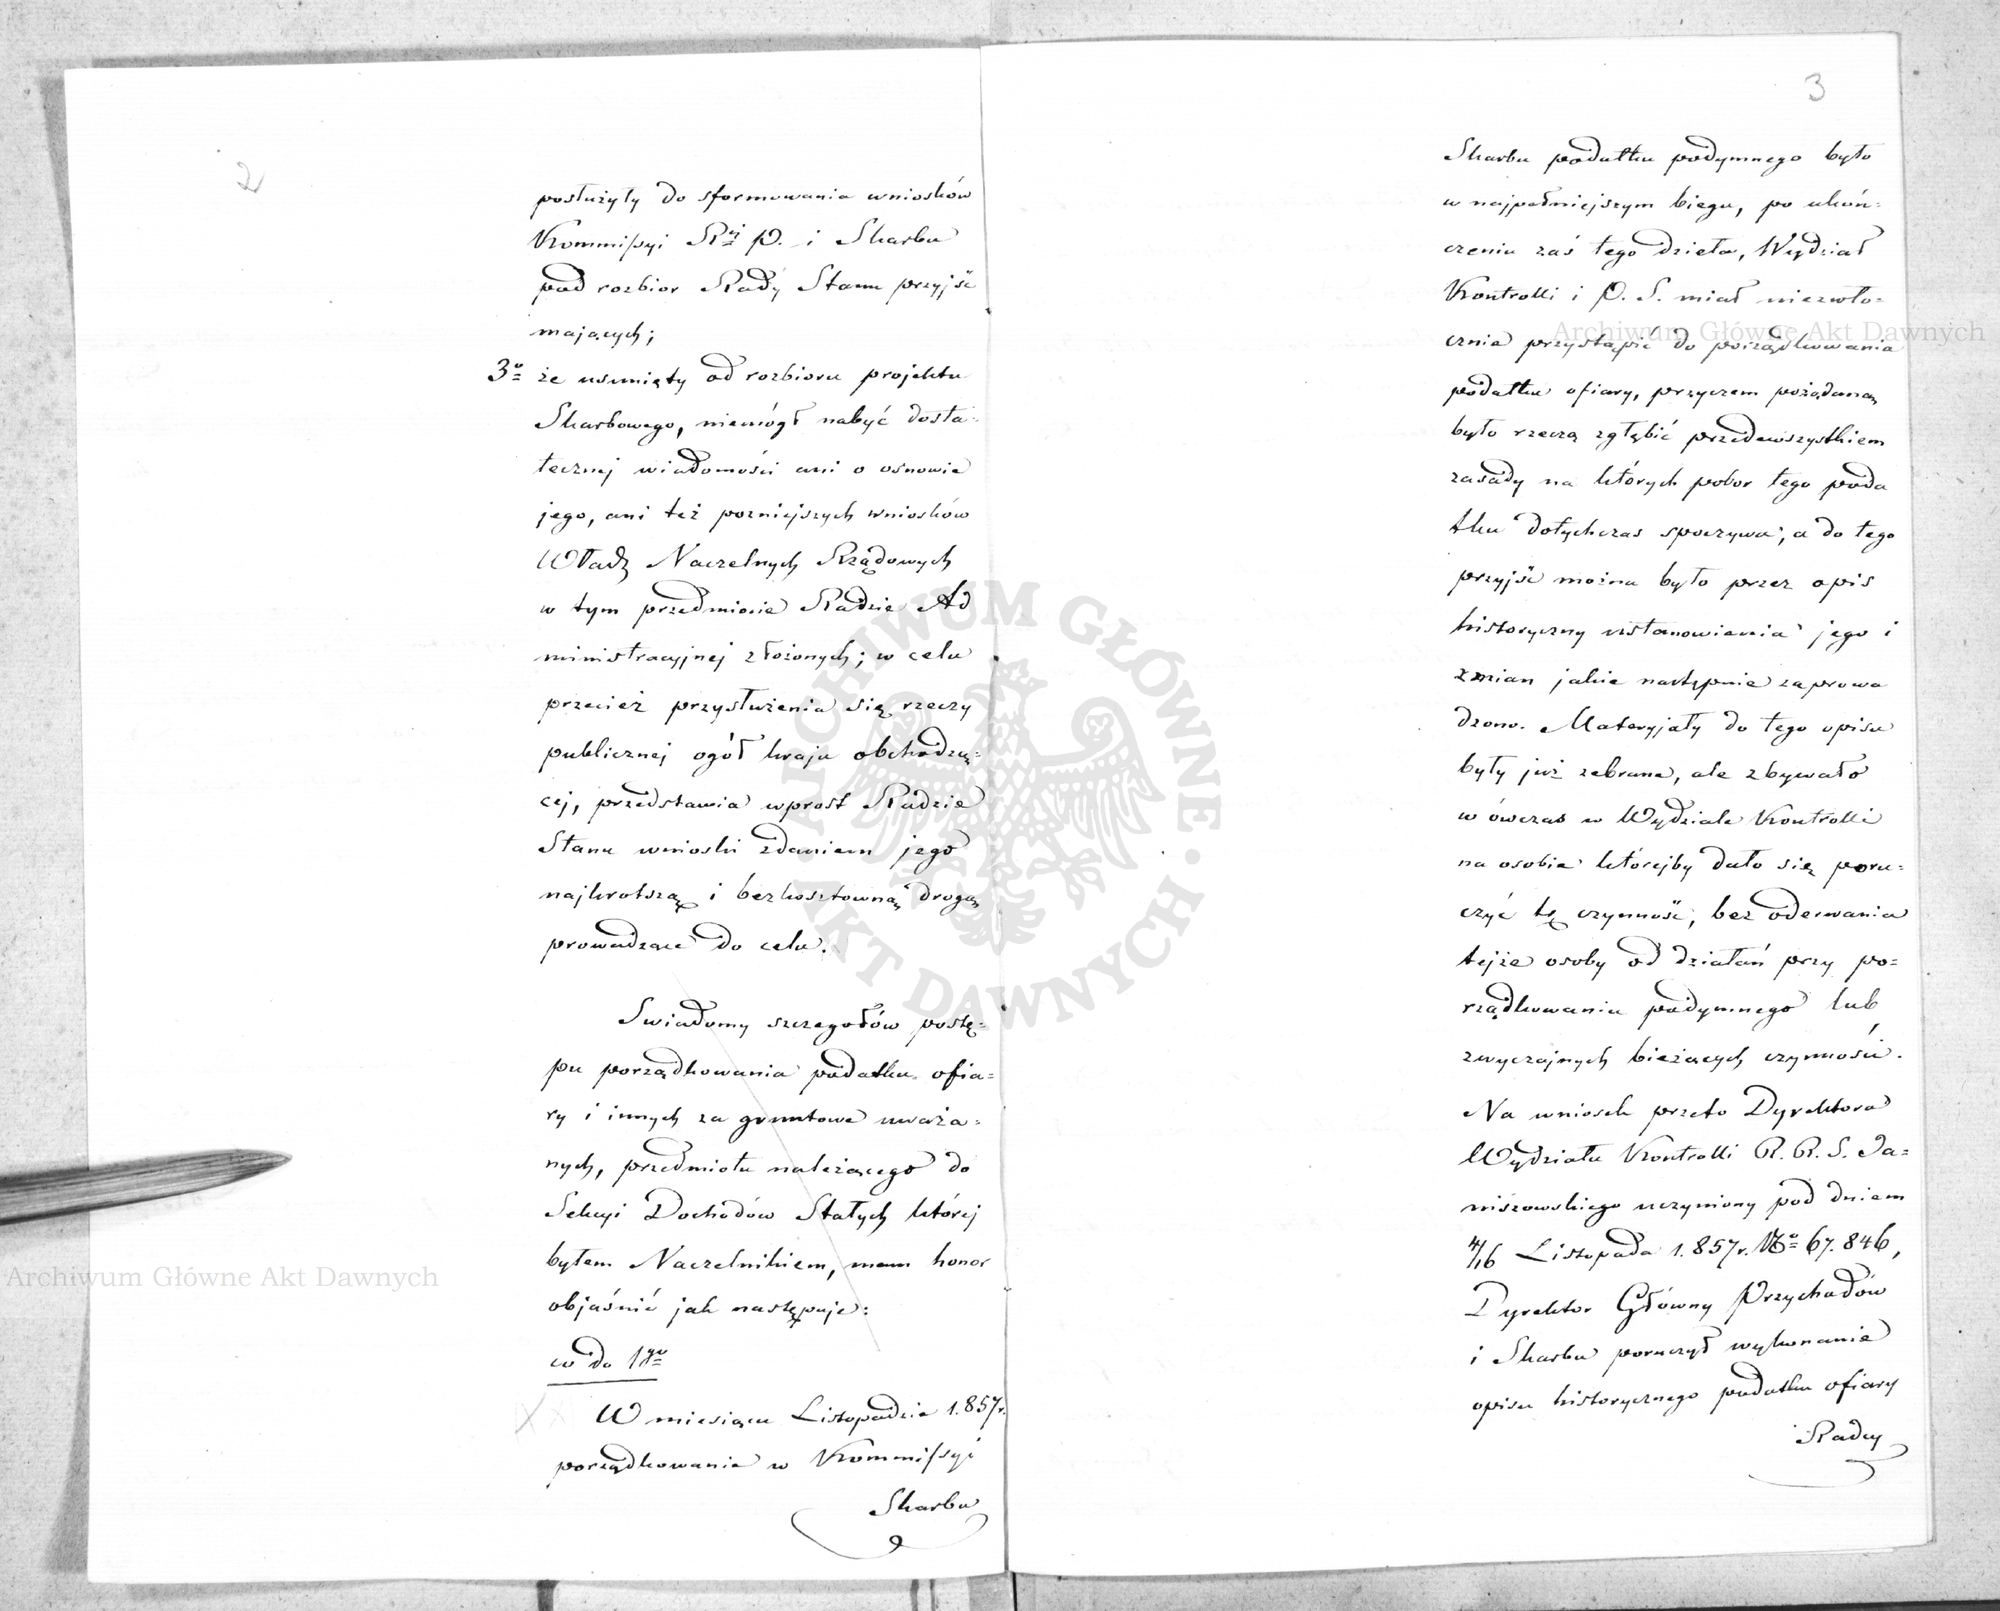 2
posłużyły do sformowania wniosków
Kommissyi Rzj P. i Skarbu
pod rozbior Rady Stanu przyjść
mających;
3o że usunięty od rozbioru projektu
Skarbowego, niemógł nabyć dosta-
tecznej wiadomości ani o osnowie
jego, ani też pozniejszych wniosków
Władz Naczelnych Rządowych
w tym przedmiocie Radzie Ad
ministracyjnej złożonych; w celu
przecież przysłużenia się rzeczy
publicznej ogół kraju obchodzą=
cej, przedstawia wprost Radzie
Stanu wnioski zdaniem jego
najkrotszą i bezkosztowną drogą
prowadzące do celu.
Swiadomy szczegołów postę=
pu porządkowania podatku ofia=
ry i innych za gruntowe uważa=
nych, przedmiotu należącego do
Sekcyi Dochodów Stałych której
byłem Naczelnikiem, mam honor
objaśnić jak następuje:
co do 1go
W miesiącu Listopadzie 1.857r.
porządkowanie w Kommissyi
Skarbu
3
Skarbu podatku podymnego było
w najpełniejszym biegu, po ukoń-
czeniu zaś tego dzieła, Wydział
Kontrolli i P. S. miał niezwło=
cznie przystąpić do porządkowania
podatku ofiary, przyczem pożądaną
było rzeczą zgłębić przedewszystkiem
zasady na których pobor tego poda
tku dotychczas spoczywa, a do tego
przyjść można było przez opis
historyczny ustanowienia jego i
zmian jakie następnie zaprowa
dzono. Materyjały do tego opisu
były już zebrane, ale zbywało
wówczas w Wydziale Kontrolli
na osobie którejby dało się poru=
czyć tę czynność, bez oderwania
tejże osoby od działań przy po=
rządkowaniu podymnego lub
zwyczajnych bieżących czynności.
Na wniosek przeto Dyrektora
Wydziału Kontrolli R. R. S. Ja=
niszowskiego uczyniony pod dniem
4/16 Listopada 1.857r. No 67.846,
Dyrektor Główny Przychodów
i Skarbu poruczył wykonanie
opisu historycznego podatku ofiary
Radcy
Archiwum Główne Akt Dawnych
Archiwum Główne Akt Dawnych
ARCHIWUM GŁÓWNE · AKT DAWNYCH ·